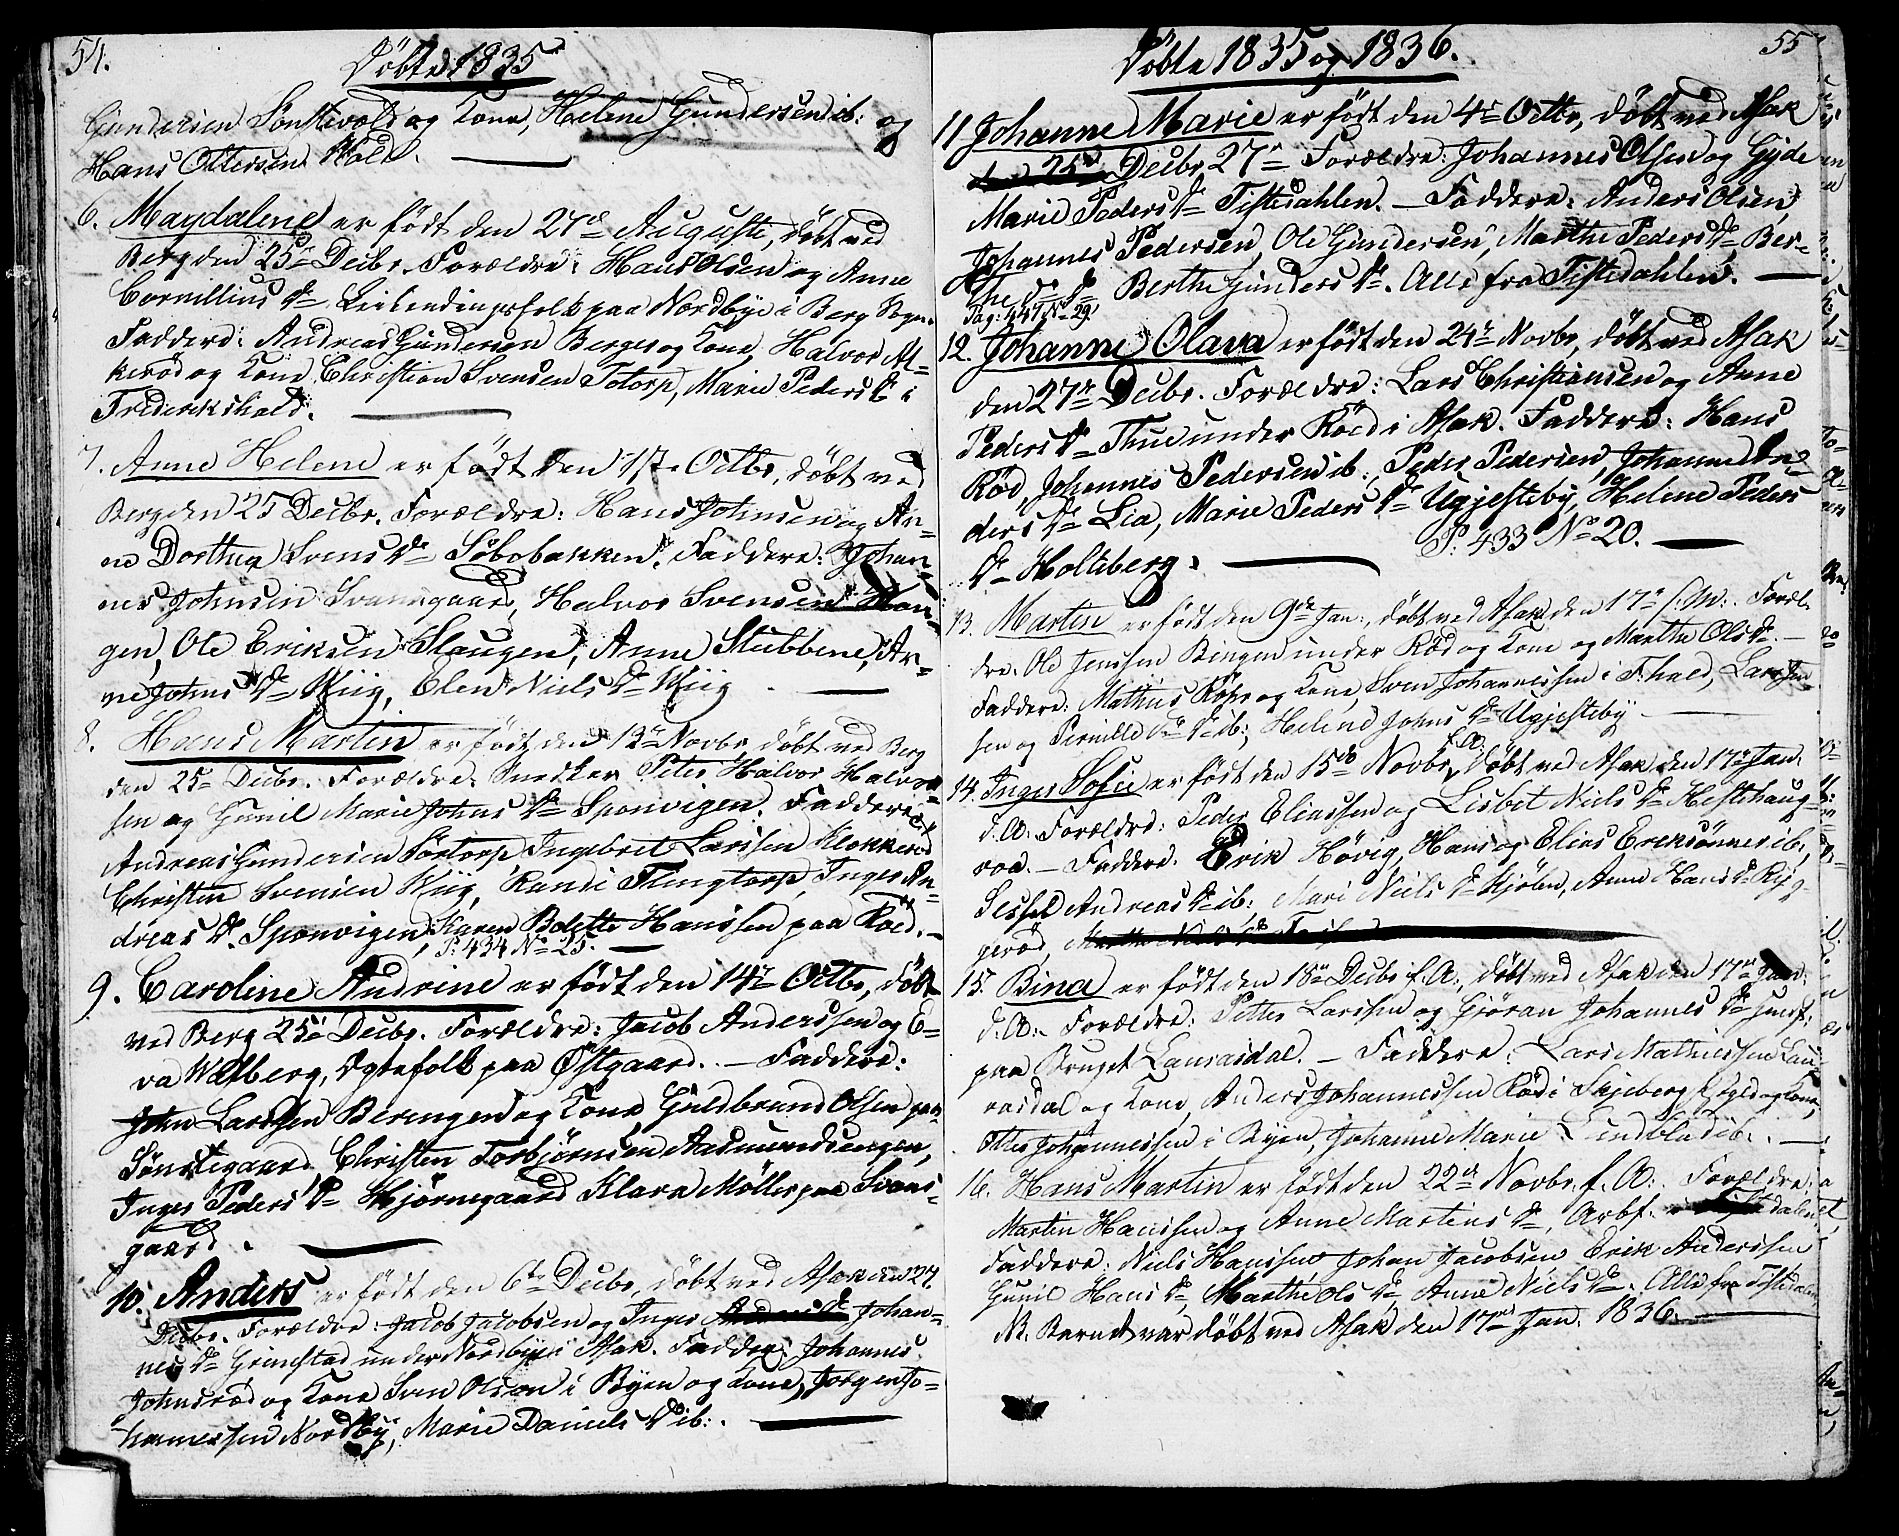 54.
Döbte 1835
Gundersen Sönstevold og Kone, Helene Gundersen ib: og
Hans Ottersen Hole.
6. Magdalene er född den 27de Auguste, döbt ved
Berg den 25de Decbr. Forældre: Hans Olsen og Anne
Cornillius Dr Leilændingsfolk paa Nordbye i Berg Sogn.
Faddere: Andreas Gundersen Berger og Kone, Halvor As-
kerød og Kone, Christian Svensen Totorp, Marie Peders Dr i
Frederikshald.
7. Anne Helene er född den 1ste Octbr, döbt ved
Berg den 25 Decbr. Forældre: Hans Johnsen og An-
ne Dorthea Svens Dr Söbobakken. Faddere: Johan-
nes Johnsen Svansgaard, Halvor Svensen Han-
gen, Ole Eriksen Slaugen, Anne Stubbene, An-
ne Johns Dr Wiig, Elen Niels Dr Wiig
8. Hans Martin er född den 12te Novbr, döbt ved Berg
den 25de Decbr. Forældre: Snedker Peter Halvor Halvor-
sen og Gunil Marie Johns Dr Sponvigen. Faddere:
Andreas Gundersen Sörtorp, Ingebret Larssen Klokkerød
Christen Svensen Wiig, Randi Tlingtorp, Inger An-
dreas Dr. Sponvigen, Karen Bolette Hanssen paa Röed.
P: 434 No 25.
9. Caroline Andrine er född den 14de Octbr, döbt
ved Berg 25de Decbr. Forældre: Jacob Anderssen og E-
va Walberg, Egtefolk paa Östgaard. - Faddere:
John Larssen Berengen og Kone Guldbrand Olsen paa
Sönstegaard, Christen Torbjörnsen Aasmundsengen,
Inger Peders Dr Hjörnegaard Klara Möller paa Svans-
gaard.
10. Anders er född den 6te Decbr, döbt ved Asak den 27.
Decbr. Forældre: Jacob Jacobsen og Inger Johan-
nes Dr Grimstad under Nordbye i Asak. Faddere: Johannes
Johnsröd og Kone Sven Olsen i Byen og Kone, Jörgen Jo-
hannessen Nordby, Marie Daniels Dr ib:.
55
Döbte 1835 og 1836.
11 Johanne Marie er född den 4de Octbr, döbt ved Asak
den 25de Decbr 27de Forældre: Johannes Olsen og Gyde
Marie Peders Dr Tistedahlen. - Faddere: Anders Olsen,
Johannes Pedersen, Ole Gundersen, Marthe Peders Dr Ber-
the Dr Berthe Gunders Dr. Alle fra Tistedahlen.
Pag: 447 No 29.
12. Johanne Olava er född den 24de Novbr, döbt ved Asak
den 27de Decbr. Forældre: Lars Christiansen og Anne
Peders Dr Thue under Röed i Asak. Faddere: Hans
Röd, Johannes Pedersen ib:, Peder Pedersen, Johanne An-
ders Dr Lia, Marie Peders Dr Ugjesteby, Helene Peders
Dr Holteberg.
P: 433 No 20.
13. Martin er född den 9de Jan:, döbt ved Asak den 17de s: M:. Foræl-
dre: Ole Jenssen Bingen under Röd og Kone og Marthe Ols Dr. -
Faddere: Mathias Röhr og Kone, Sven Johannessen i F:hald, Lars Jen-
sen og Pernille Dr ib:, Helene Johns Dr Ugjesteby
14. Inger Sofie er född den 15de Novbr f. A:, döbt ved Asak den 17de Jan.
d. A: Forældre: Peder Eliassen og Lisbet Niels Dr Hestehaug-
roa. - Faddere: Erik Hövig, Hans og Elias Eriksönner ib:,
Sessel Andreas Dr ib:, Mari Niels Dr Kjöben, Anne Hans Dr Rÿg-
geröd,
15. Bina er född den 18de Decbr f. A:, döbt ved Asak den 17de Jan:
d. A:. Forældre: Petter Larssen og Gjöran Johannes Dr Huusf.
paa Bruget Laurasdal. - Faddere: Lars Mathiessen Lau-
rasdal og Kone, Anders Johannessen Röd i Skjeberg Sogld og Kone,
Otter Johannessen i Byen, Johanne Marie Lindblad ib:. -
16. Hans Martin er född den 22de Novbr. f. A:. Forældre:
Martin Hanssen og Anne Martens Dr, Arbf. i Tistedalen
Faddere: Niels Hanssen Johan Jacobsen Erik Anderssen
Gunil Hans Dr, Marthe Ols Dr, Anne Niels Dr. Alle fra Tistedalen
NB. Barnet var döbt ved Asak den 17de Jan. 1836.